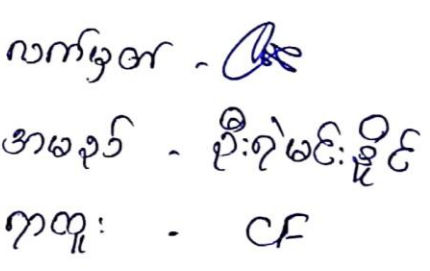 လက်မှတ် -
အမည် - ဦးရဲမင်းနိုင်
ရာထူး - CF